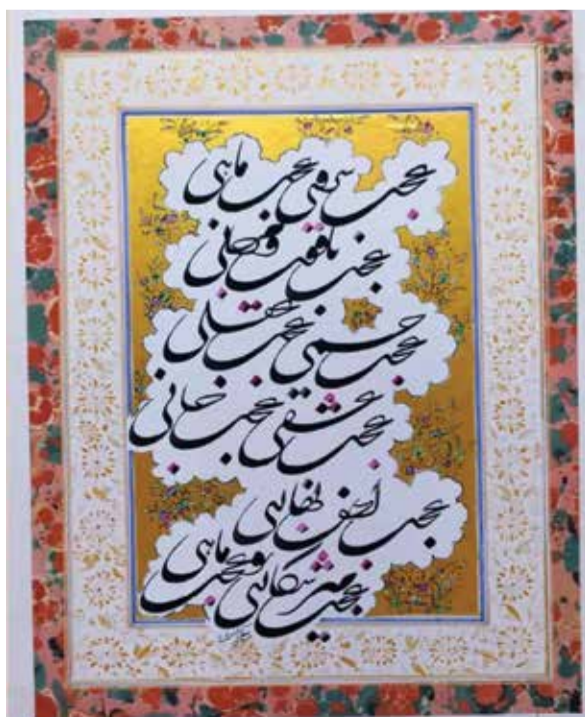 عجب سروی عجب ماهی
عجب یاقوت و مرجانی
عجب جسمی عجب عقلی
عجب عشقی عجب جانی
عجب لطف
عجب میر عجب ماهی